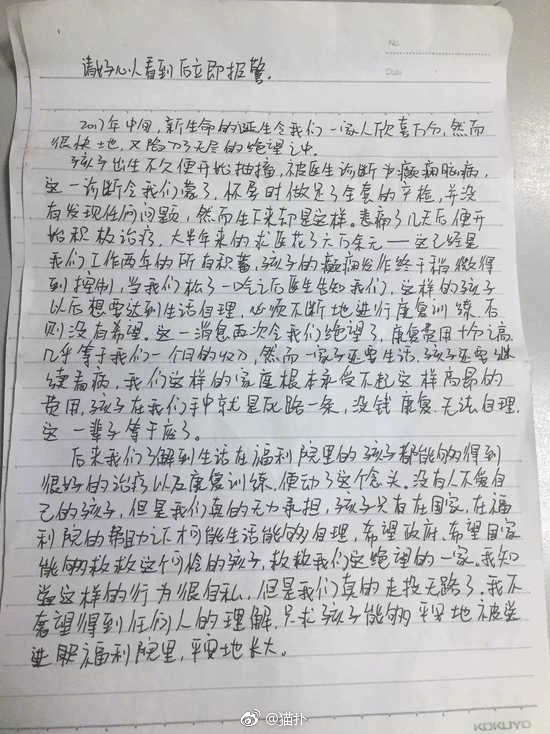 No.
Date
请好心人看到后立即报警。
2017年中旬，新生命的诞生令我们一家人欣喜万分，然而
很快地，又陷入了无尽的绝望之中。
孩子出生不久便开始抽搐，被医生诊断为癫痫脑病，
这一诊断令我们懵了，怀孕时做足了全套的产检，并没
有发现任何问题，然而生下来却是这样。悲痛了几天后便开
始积极治疗，大半年来的求医花了六万余元——这已经是
我们工作两年的所有积蓄，孩子的癫痫发作终于稍微得
到控制，当我们松了一口气之后医生告知我们，这样的孩子
以后想要达到生活自理，必须不断地进行康复训练，否
则没有希望。这一消息再次令我们绝望了，康复费用十分之高，
几乎等于我们一个月的收入，然而一家子还要生活，孩子还要继
续看病，我们这样的家庭根本承受不起这样高昂的
费用，孩子在我们手中就是死路一条，没钱康复，无法自理，
这一辈子等于废了。
后来我们了解到生活在福利院里的孩子都能够得到
很好的治疗以及康复训练，便动了这个念头，没有人不爱自
己的孩子，但是我们真的无力承担，孩子只有在国家，在福
利院的帮助之下才可能生活能够自理，希望政府、希望国家
能够救救这个可怜的孩子，救救我们这绝望的一家。我知
道这样的行为很自私，但是我们真的走投无路了。我不
奢望得到任何人的理解，只求孩子能够平安地被送
进那福利院里，平安地长大。
@猫扑
KOKUYO